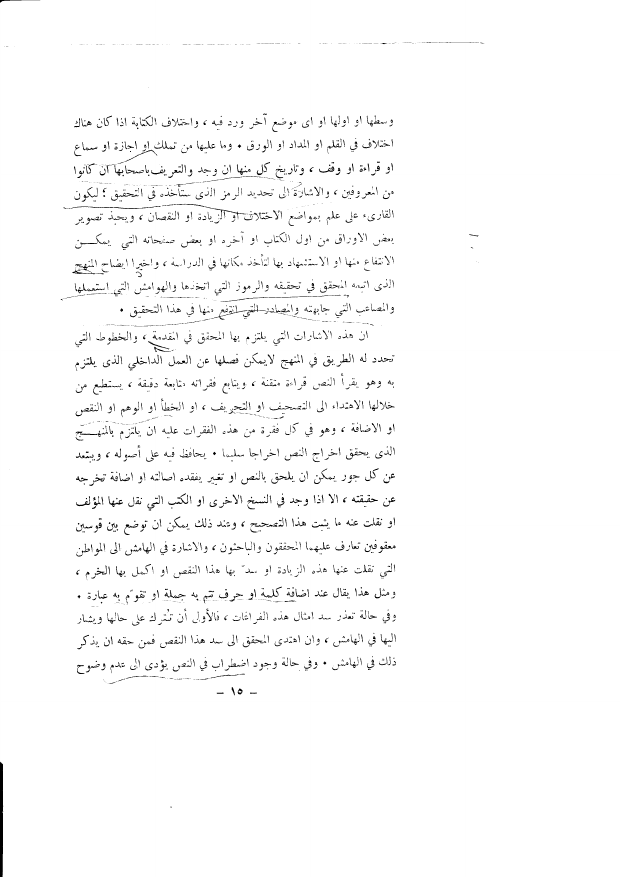 وسطها او اولها او اى موضع آخر ورد فيه ، واختلاف الكتابة اذا كان هناك
اختلاف في القلم او المداد او الورق ٠ وما عليها من تملك او اجازة او سماع
او قراءة او وقف ، وتاريخ كل منها ان وجد والتعريف باصحابها ان كانوا
من المعروفين ، والاشارة الى تحديد الرمز الذى ستأخذه في التحقيق ؛ ليكون
القارىء على علم بمواضع الاختلاف او الزيادة او النقصان ، ويحبذ تصوير
بعض الاوراق من اول الكتاب او آخره او بعض صفحاته التي يمكـــن
الانتفاع منها او الاستشهاد بها لتأخذ مكانها في الدراسة ، واخيرا ايضاح المنهج
الذى اتبعه المحقق في تحقيقه والرموز التي اتخذها والهوامش التي استعملها
والمصاعب التي جابهته والمصادر التي انتفع منها في هذا التحقيق ٠
ان هذه الاشارات التي يلتزم بها المحقق في المقدمة ، والخطوط التي
تحدد له الطريق في المنهج لايمكن فصلها عن العمل الداخلي الذى يلتزم
به وهو يقرأ النص قراءة متقنة ، ويتابع فقراته متابعة دقيقة ، يستطيع من
خلالها الاهتداء الى التصحيف او التحريف ، او الخطأ او الوهم او النقص
او الاضافة ، وهو في كل فقرة من هذه الفقرات عليه ان يلتزم بالمنهـــج
الذى يحقق اخراج النص اخراجا سليما ٠ يحافظ فيه على أصوله ، ويبتعد
عن كل جور يمكن ان يلحق بالنص او تغيير يفقده اصالته او اضافة تخرجه
عن حقيقته ، الا اذا وجد في النسخ الاخرى او الكتب التي نقل عنها المؤلف
او نقلت عنه ما يثبت هذا التصحيح ، وعند ذلك يمكن ان توضع بين قوسين
معقوفين تعارف عليهما المحققون والباحثون ، والاشارة في الهامش الى المواطن
التي نقلت عنها هذه الزيادة او سدّ بها هذا النقص او اكمل بها الخرم ،
ومثل هذا يقال عند اضافة كلمة او حرف تتم به جملة او تقوّم به عبارة ٠
وفي حالة تعذر سد امثال هذه الفراغات ، فالأولى أن تترك على حالها ويشار
اليها في الهامش ، وان اهتدى المحقق الى سد هذا النقص فمن حقه ان يذكر
ذلك في الهامش ٠ وفي حالة وجود اضطراب في النص يؤدى الى عدم وضوح
– ١٥ –